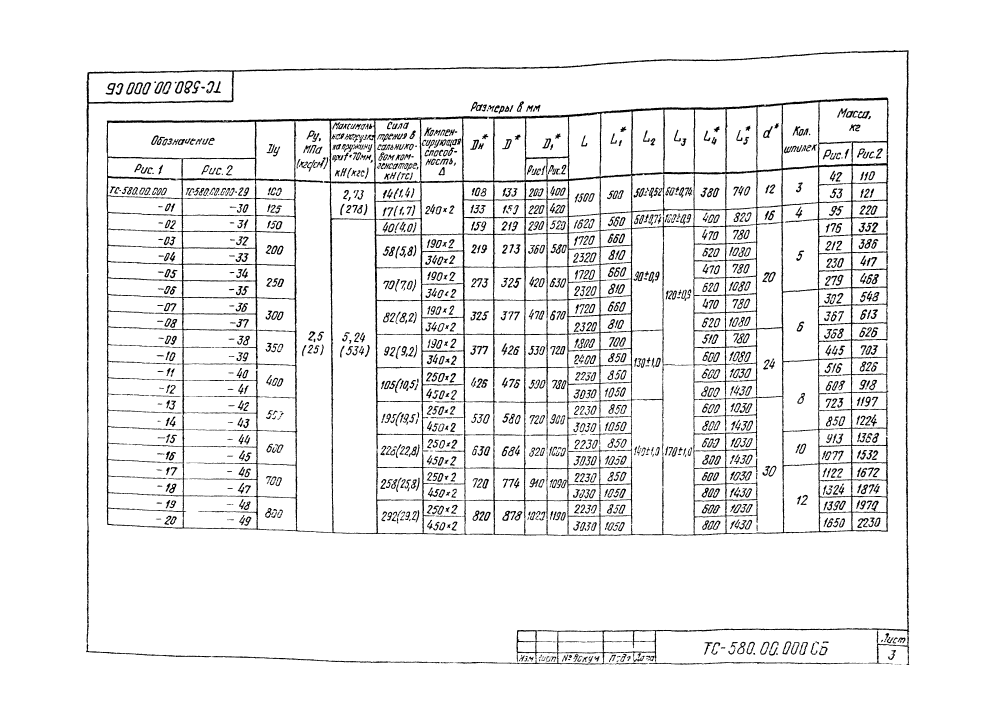 ТС-580.00.000 СБ
Размеры в мм
Обозначение Dу Ру, МПа (кгс/см²) Максималь- ная нагрузка на пружину при f=70мм, кН (кгс) Сила трения в сальнико- вом ком- пенсаторе, кН (тс) Компен- сирующая способ- ность, Δ Dн* D* D₁* L L₁* L₂ L₃ L₄* L₅* d* Кол. шпилек Масса, кг
Рис. 1 Рис. 2 Рис1 Рис2 Рис.1 Рис.2
ТС-580.00.000 ТС-580.00.000-29 100 2,5 (25) 2,73 (278) 14(1,4) 240×2 108 133 200 400 1500 500 50±0,52 60±0,74 380 740 12 3 42 110
-01 -30 125 17(1,7) 133 159 220 420 53 121
-02 -31 150 5,24 (534) 40(4,0) 159 219 290 520 1620 560 50±0,74 100±0,9 400 820 16 4 95 220
-03 -32 200 58(5,8) 190×2 219 273 360 580 1720 660 90±0,9 120±0,9 470 780 20 5 176 352
-04 -33 340×2 2320 810 620 1080 212 386
-05 -34 250 70(7,0) 190×2 273 325 420 630 1720 660 470 780 230 417
-06 -35 340×2 2320 810 620 1080 279 468
-07 -36 300 82(8,2) 190×2 325 377 470 670 1720 660 470 780 6 302 548
-08 -37 340×2 2320 810 620 1080 367 613
-09 -38 350 92(9,2) 190×2 377 426 530 720 1800 700 130±1,0 170±1,0 510 780 24 358 626
-10 -39 340×2 2400 850 600 1080 445 703
-11 -40 400 105(10,5) 250×2 426 476 590 780 2230 850 600 1030 8 516 826
-12 -41 450×2 3030 1050 800 1430 608 918
-13 -42 500 195(19,5) 250×2 530 580 720 900 2230 850 140±1,0 600 1030 30 723 1197
-14 -43 450×2 3030 1050 800 1430 850 1224
-15 -44 600 228(22,8) 250×2 630 684 820 1000 2230 850 600 1030 10 913 1368
-16 -45 450×2 3030 1050 800 1430 1077 1532
-17 -46 700 258(25,8) 250×2 720 774 910 1090 2230 850 600 1030 12 1122 1672
-18 -47 450×2 3030 1050 800 1430 1324 1874
-19 -48 800 292(29,2) 250×2 820 878 1020 1190 2230 850 600 1030 1390 1970
-20 -49 450×2 3030 1050 800 1430 1650 2230
Изм Лист № докум Подп Дата
ТС-580.00.000 СБ
Лист
3